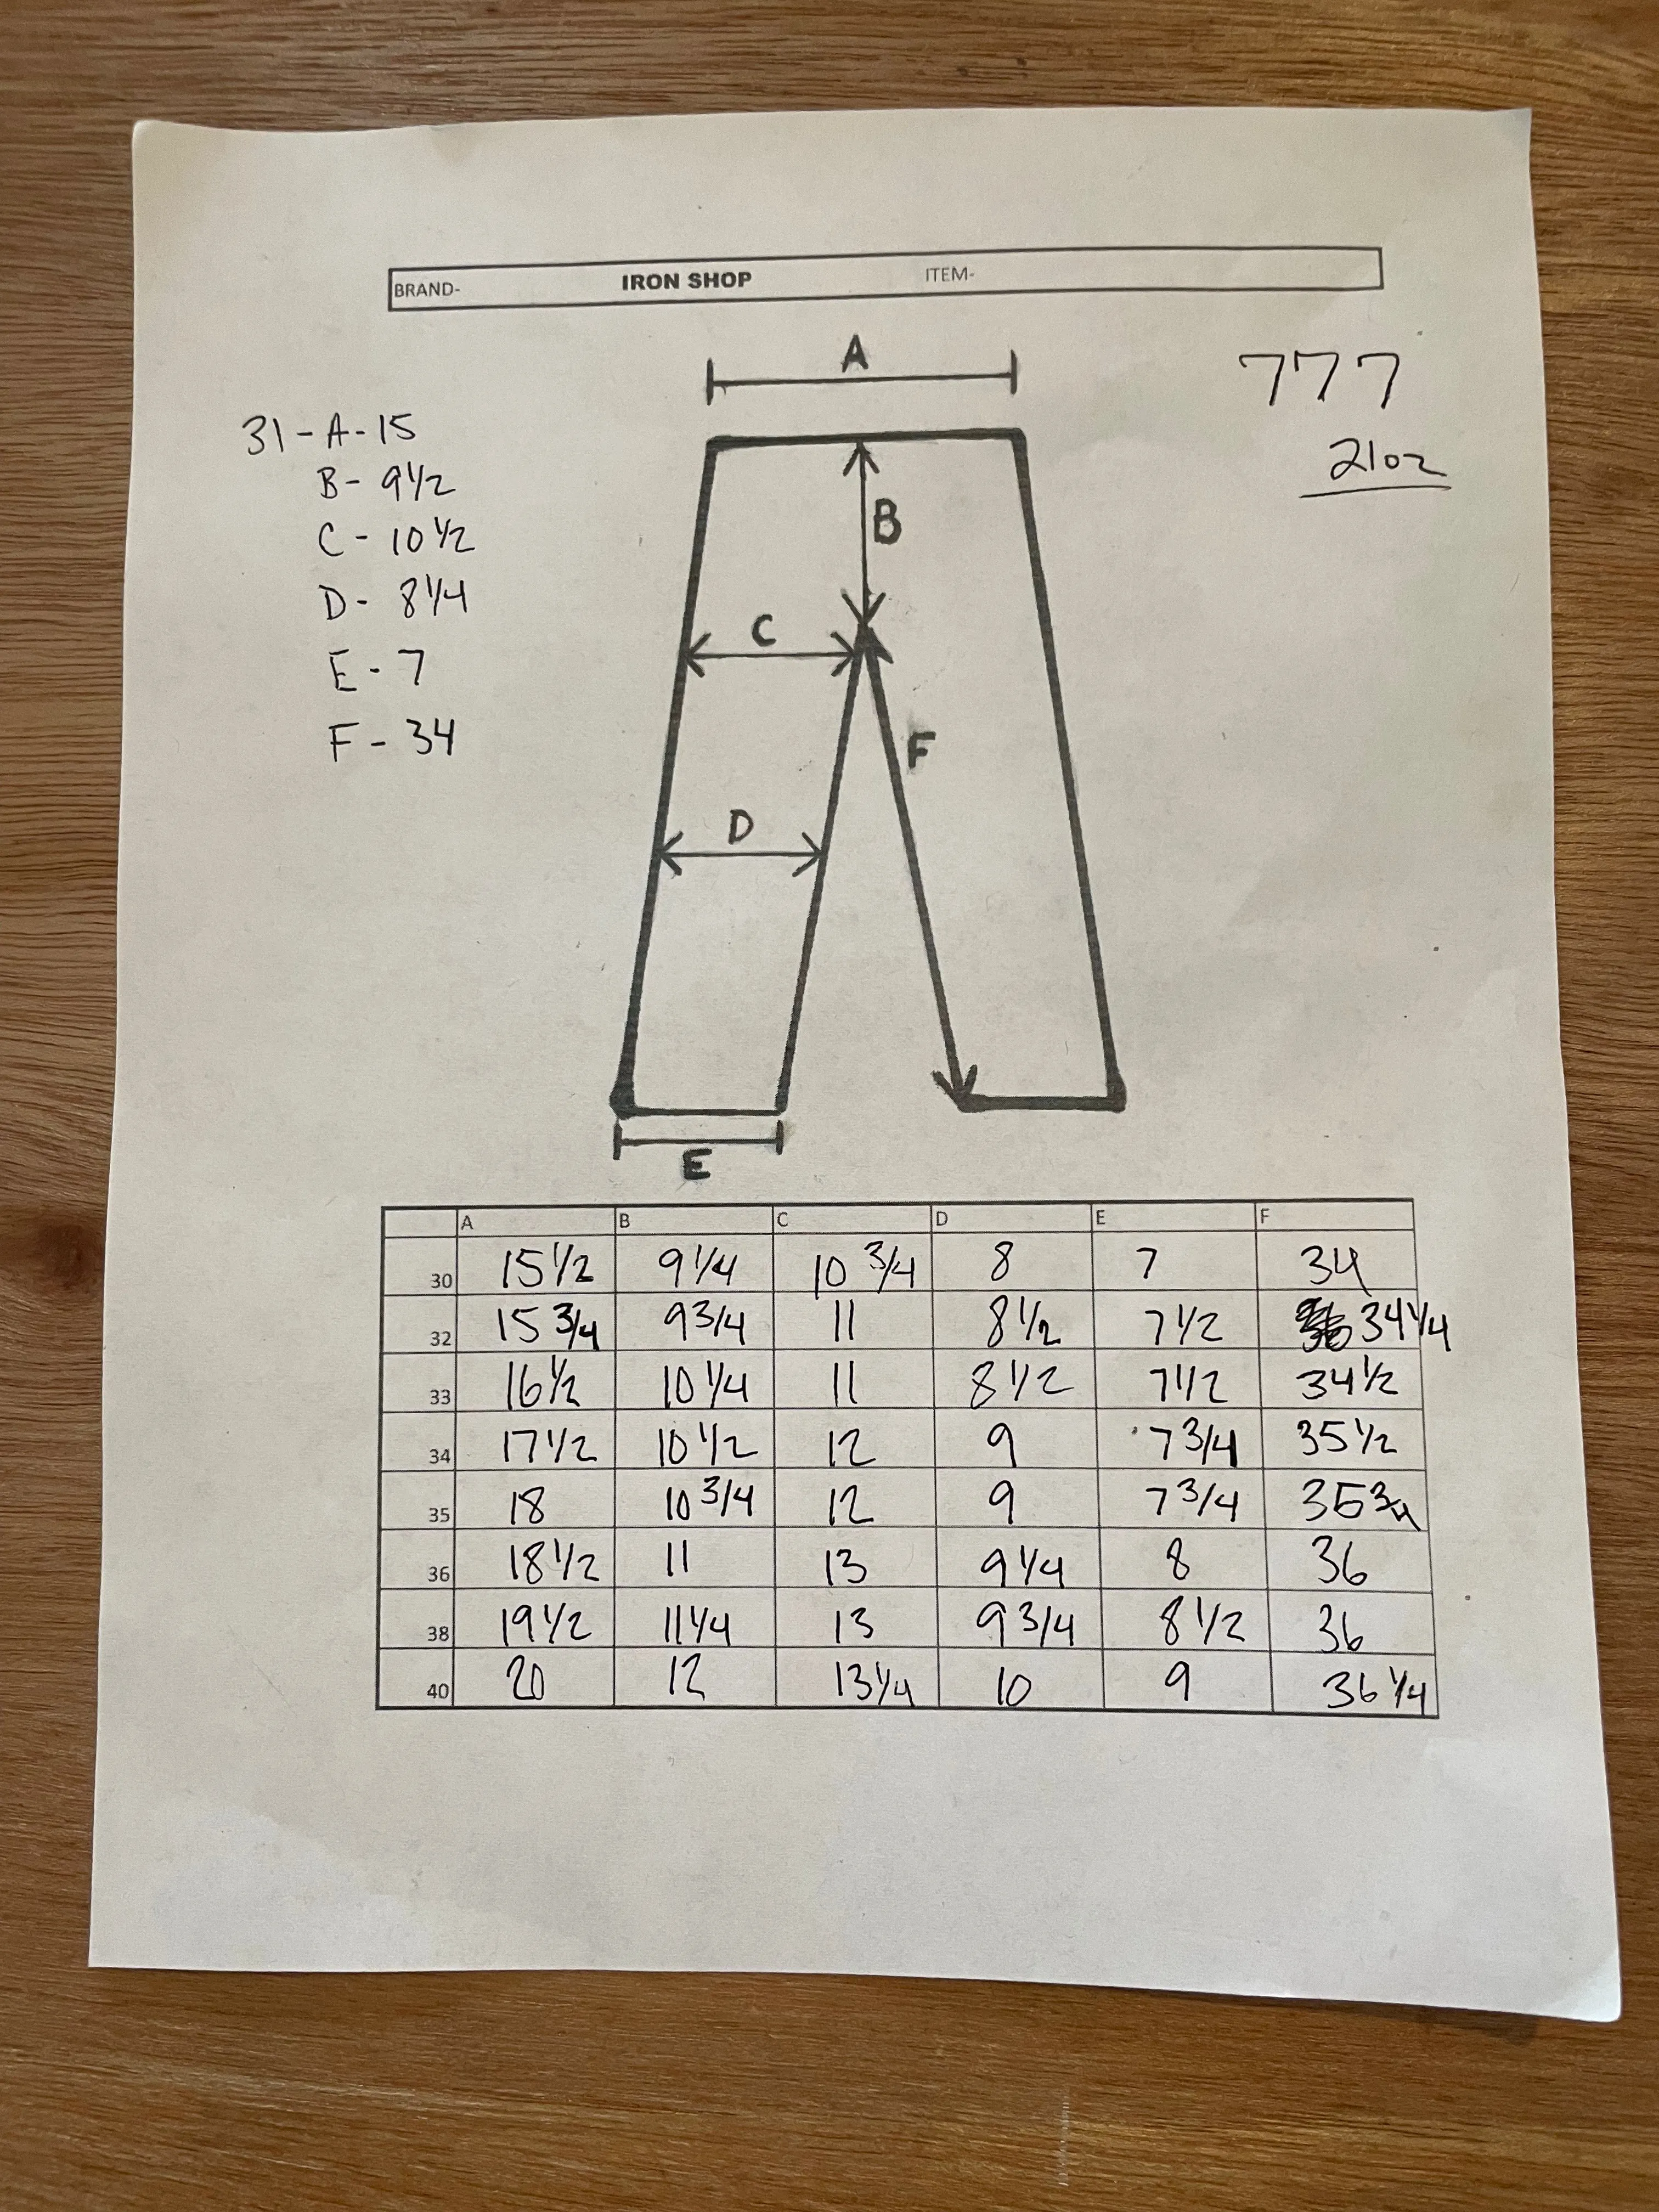 BRAND- IRON SHOP ITEM-
A
777
21oz
31-A-15
B- 9 1/2
C- 10 1/2
D- 8 1/4
E-7
F-34
B
C
F
D
E
A B C D E F
30 15 1/2 9 1/4 10 3/4 8 7 34
32 15 3/4 9 3/4 11 8 1/2 7 1/2 34 1/4
33 16 1/2 10 1/4 11 8 1/2 7 1/2 34 1/2
34 17 1/2 10 1/2 12 9 7 3/4 35 1/2
35 18 10 3/4 12 9 7 3/4 35 3/4
36 18 1/2 11 13 9 1/4 8 36
38 19 1/2 11 1/4 13 9 3/4 8 1/2 36
40 20 12 13 1/4 10 9 36 1/4